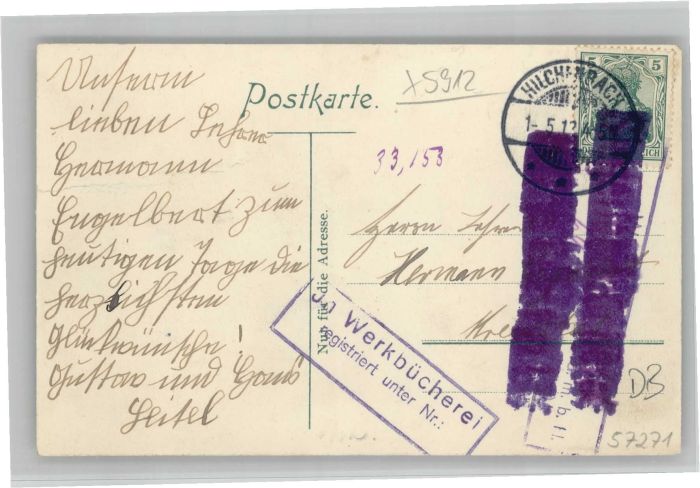 Unserm
lieben Lehrer
Hermann
Engelbert zum
heutigen Tage die
herzlichsten
Glückwünsche!
Gustav und Hans
Seitel
Postkarte.
X5912
HILCHENBACH
1-5.12
5
5
33,153
Nur für die Adresse.
Herrn Lehrer
Hermann
Werkbücherei
registriert unter Nr.:
m. b. H.
DB
57271